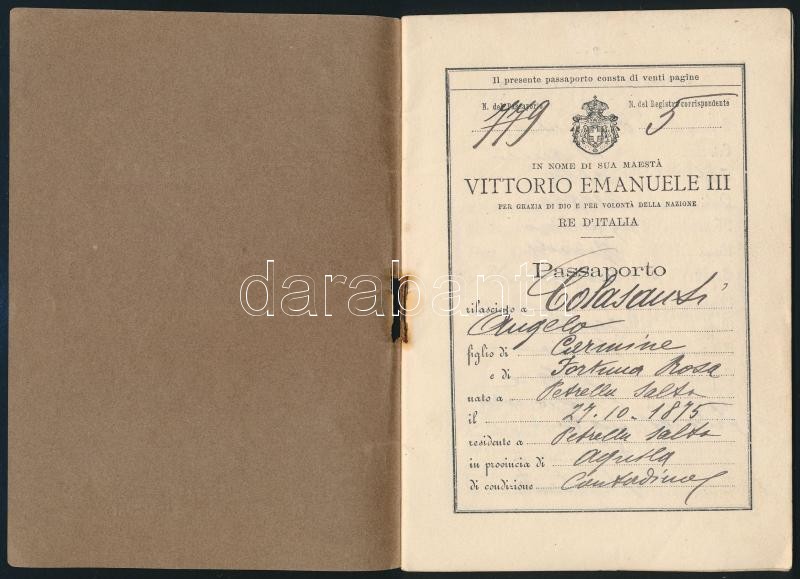 Il presente passaporto consta di venti pagine
N. del Passaporto N. del Registro corrispondente
779 5
IN NOME DI SUA MAESTÀ
VITTORIO EMANUELE III
PER GRAZIA DI DIO E PER VOLONTÀ DELLA NAZIONE
RE D'ITALIA
Passaporto
rilasciato a Colasanti
Angelo
figlio di Carmine
e di Fortuna Rosa
nato a Petrella Salto
il 27-10-1875
residente a Petrella Salto
in provincia di Aquila
di condizione Contadino
darabanth